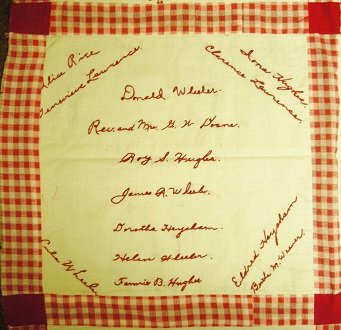 Alice Rice
Genevieve Lawrence.
Irma Hughes
Clarence Lawrence.
Donald Wheeler.
Rev. and Mrs. G. W. Doane.
Roy S. Hughes
James A. Wheeler.
Dorotha Heysham.
Helen Wheeler.
Fannie B. Hughes
Wheeler
Eldred Heysham
M. Weaver.